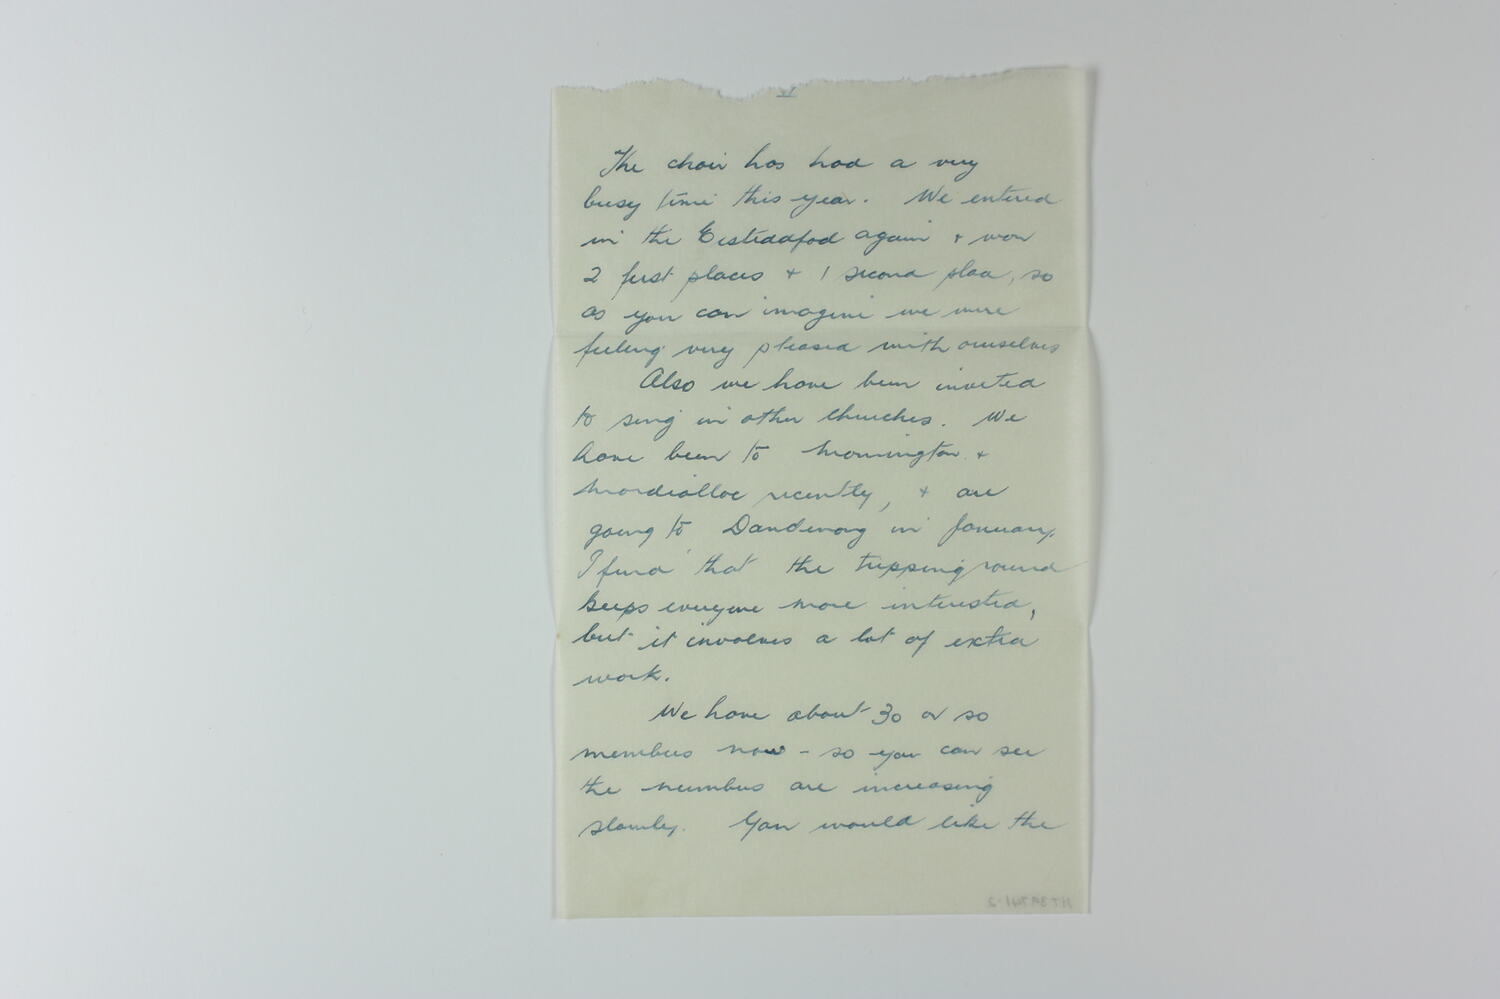 VI
The choir has had a very
busy time this year. We entered
in the Eisteddfod again & won
2 first places & 1 second place, so
as you can imagine we were
feeling very pleased with ourselves
Also we have been invited
to sing in other churches. We
have been to Mornington &
Mordialloc recently, & are
going to Dandenong in January.
I find that the tripping round
keeps everyone more interested,
but it involves a lot of extra
work.
We have about 30 or so
members now - so you can see
the numbers are increasing
slowly. You would like the